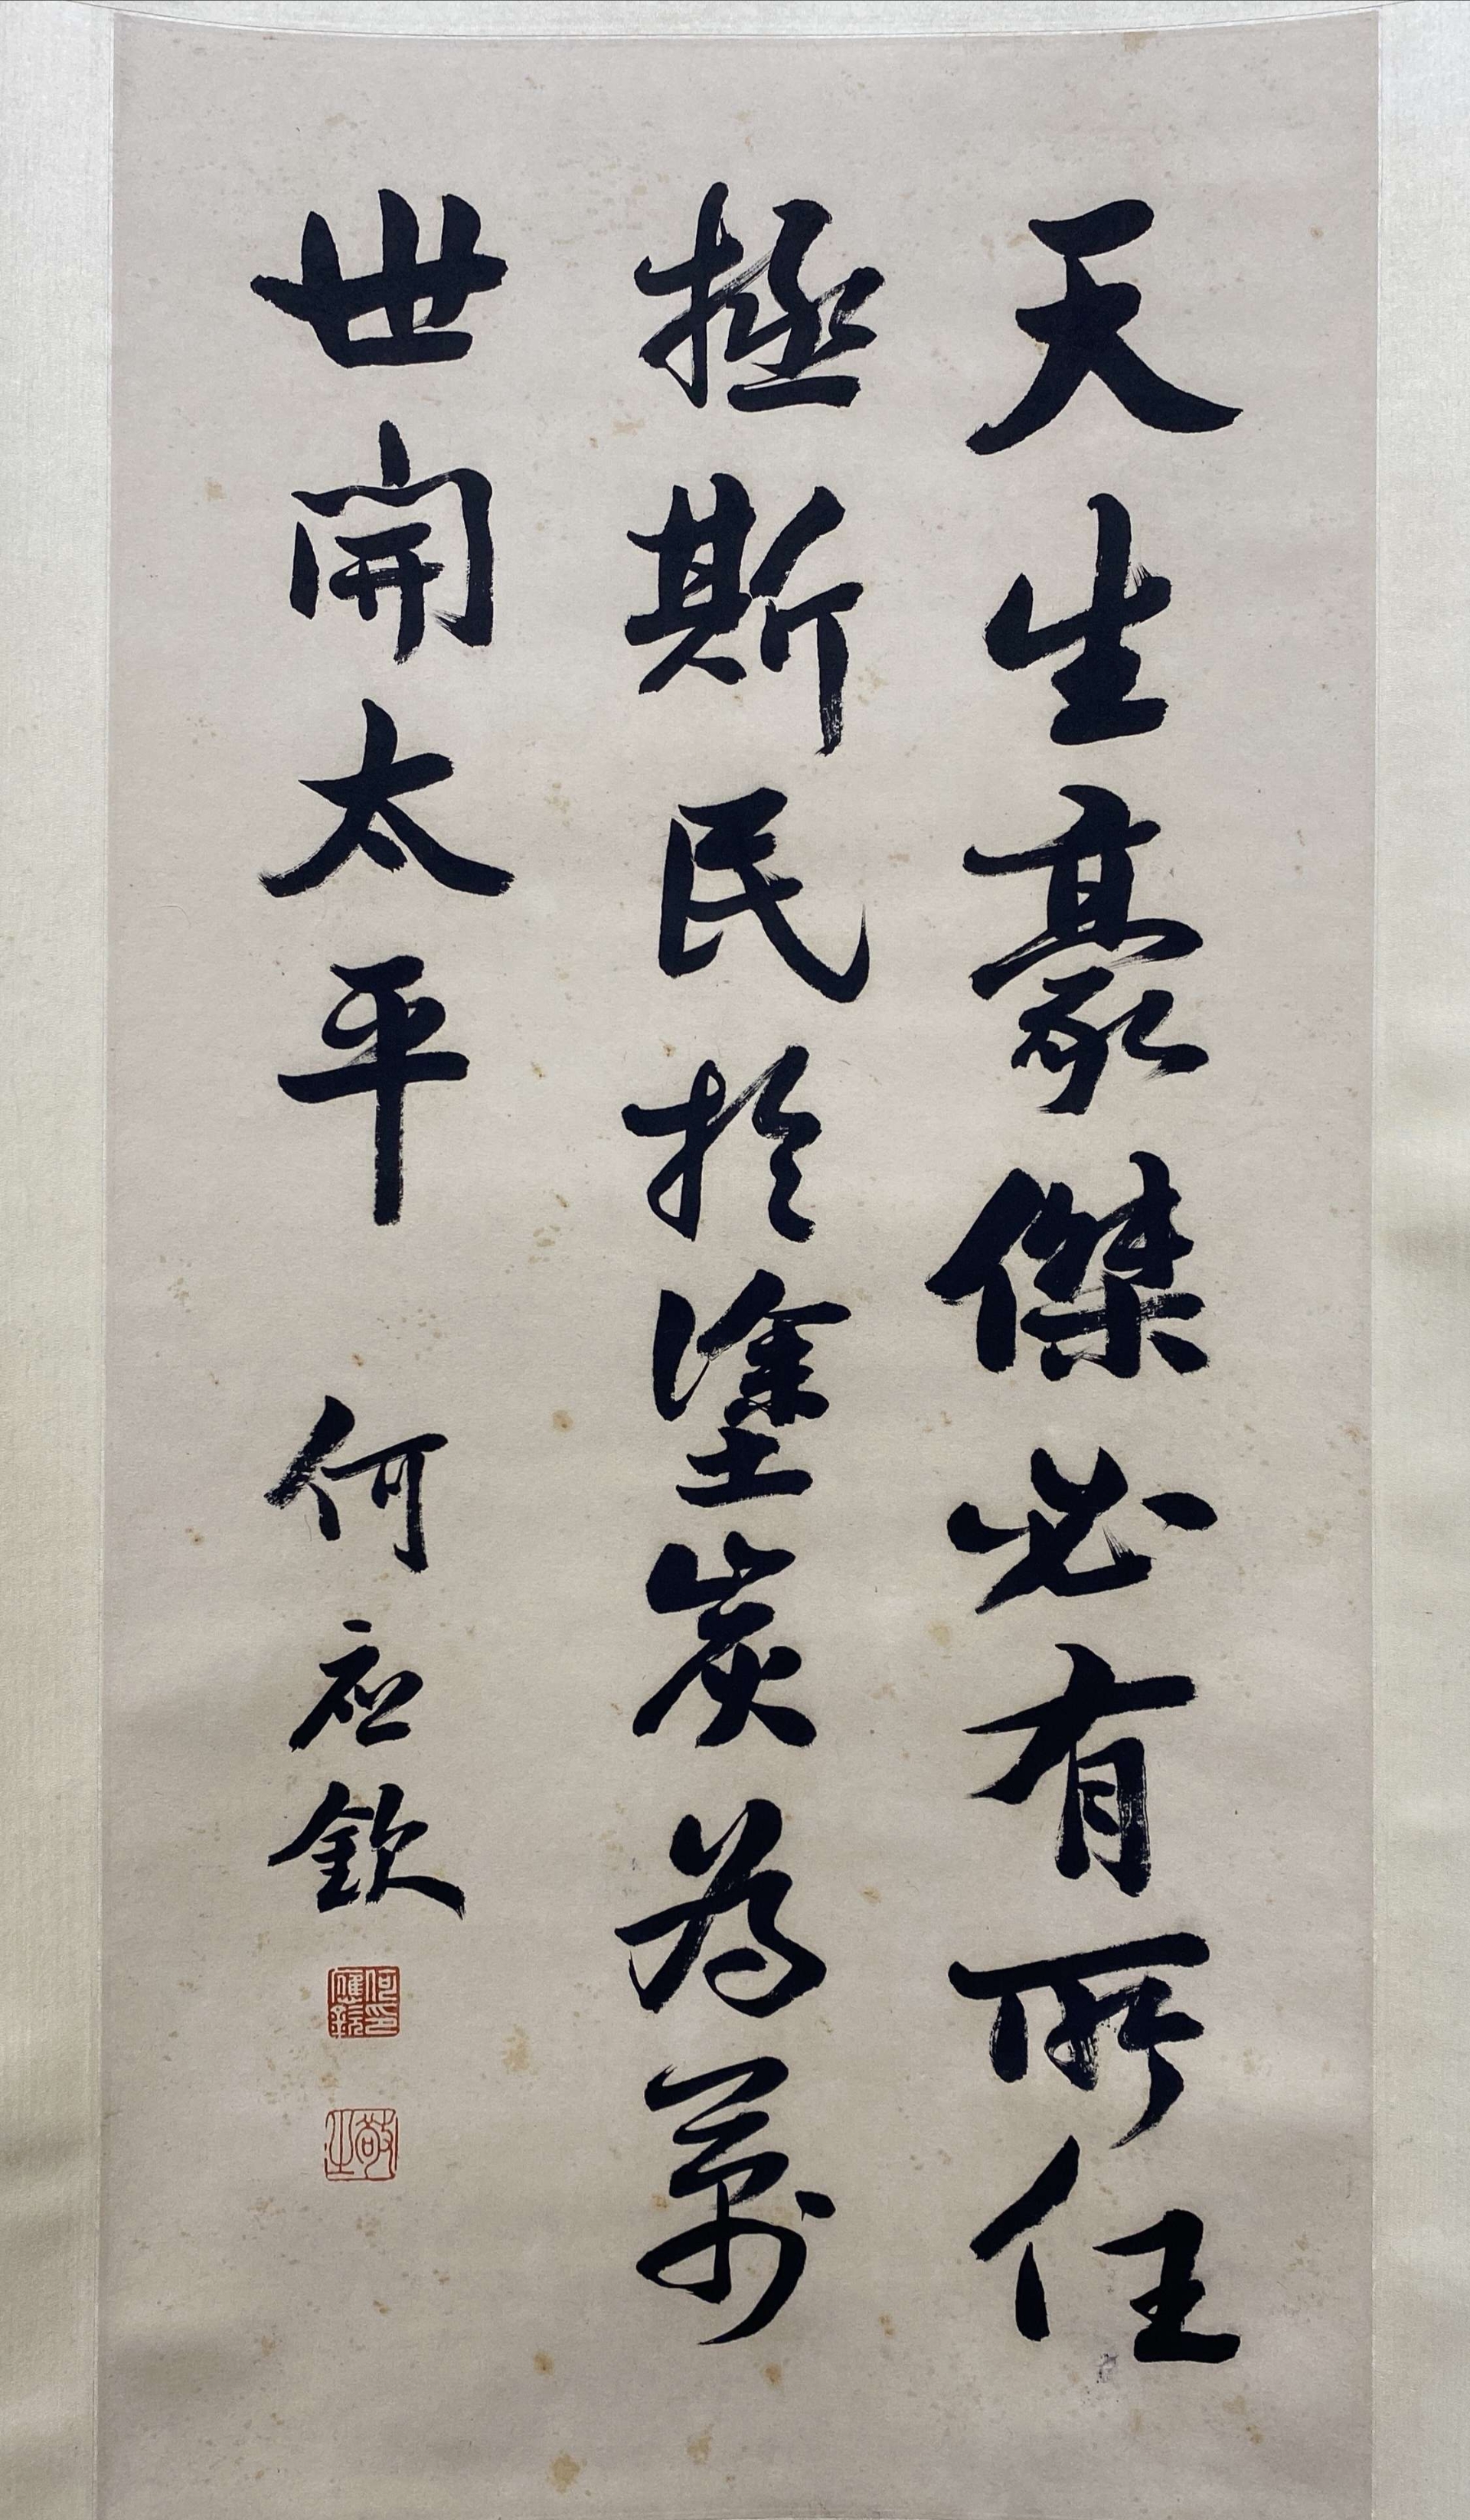 天生豪傑必有所任
拯斯民於塗炭為萬
世開太平 何应欽
何應欽印
敬之